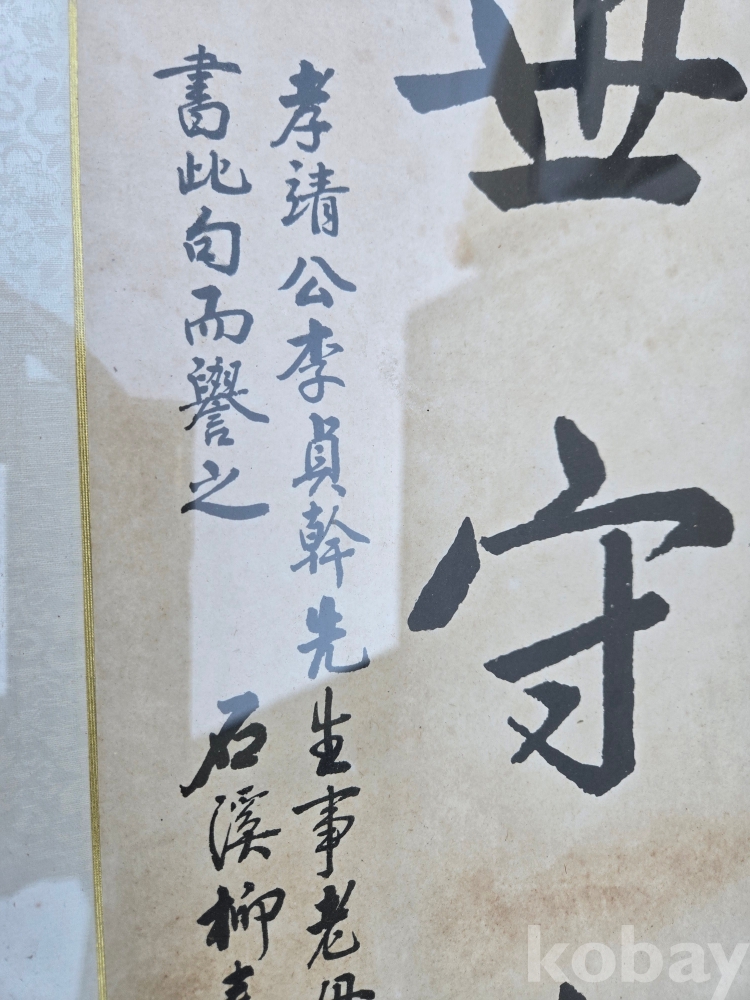 世守
孝靖公李貞幹先生事老母
書此句而譽之
石溪柳
kobay